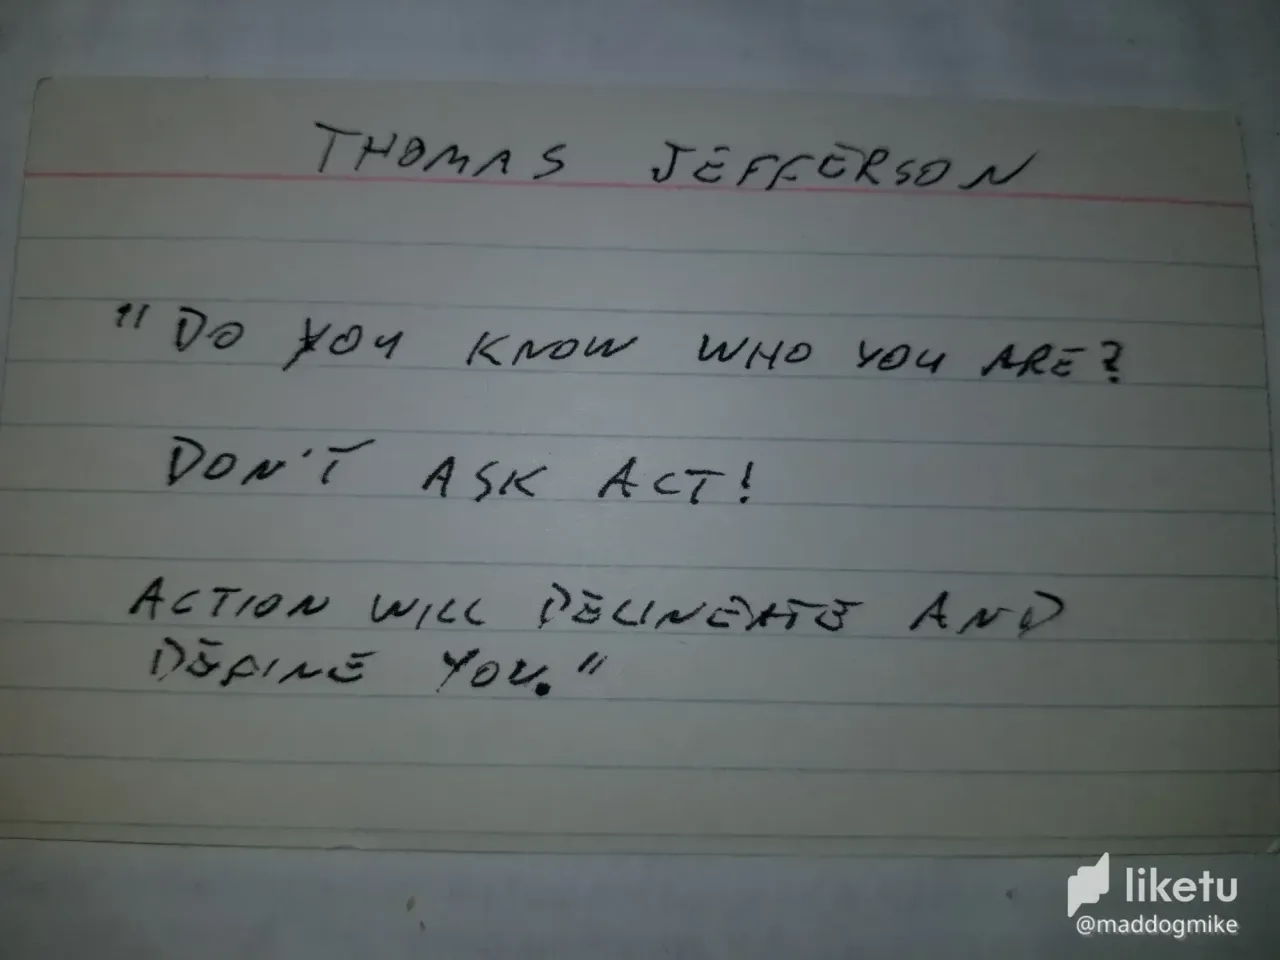 THOMAS JEFFERSON
"DO YOU KNOW WHO YOU ARE?
DON'T ASK ACT!
ACTION WILL DELINEATE AND
DEFINE YOU."
liketu
@maddogmike